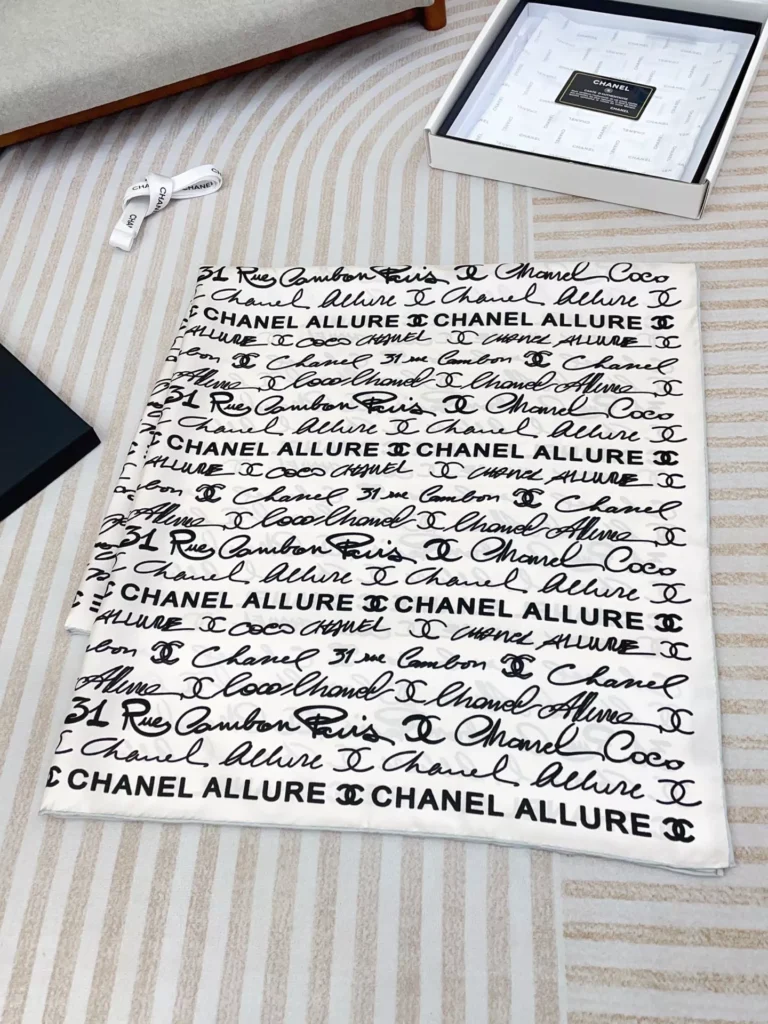 CHANEL
CHANEL
CHANEL
31 Rue Cambon Paris Chanel Coco
Chanel Allure Chanel Allure
CHANEL ALLURE CHANEL ALLURE
ALLURE COCO CHANEL CHANEL ALLURE
bon Chanel 31 rue Cambon Chanel
Allure Coco Chanel Chanel Allure
31 Rue Cambon Paris Chanel Coco
Chanel Allure Chanel Allure
CHANEL ALLURE CHANEL ALLURE
ALLURE COCO CHANEL CHANEL ALLURE
bon Chanel 31 rue Cambon Chanel
Allure Coco Chanel Chanel Allure
31 Rue Cambon Paris Chanel Coco
Chanel Allure Chanel Allure
CHANEL ALLURE CHANEL ALLURE
ALLURE COCO CHANEL CHANEL ALLURE
bon Chanel 31 rue Cambon Chanel
Allure Coco Chanel Chanel Allure
31 Rue Cambon Paris Chanel Coco
Chanel Allure Chanel Allure
CHANEL ALLURE CHANEL ALLURE